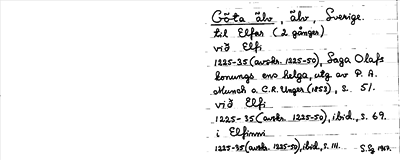 Göta älv, älv, Sverige.
til Elfar (2 gånger)
við Elfi
1225-35 (avskr. 1225-50), Saga Olafs
konungs ens helga, utg. av P. A.
Munch o. C.R. Unger (1853), s. 51.
við Elfi
1225-35 (avskr. 1225-50), ibid., s. 69.
i Elfinni
1225-35 (avskr. 1225-50), ibid., s. 111.